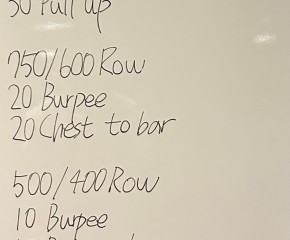 50 Pull up
750/600 Row
20 Burpee
20 Chest to bar
500/400 Row
10 Burpee